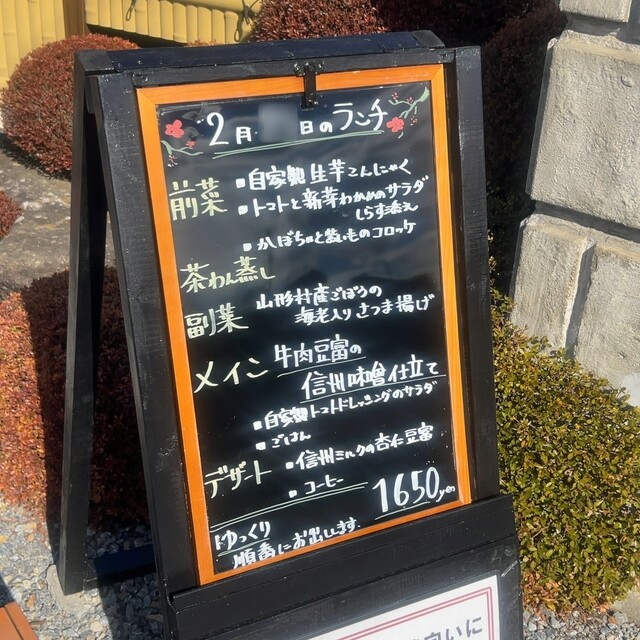 2月 日のランチ
前菜 ・自家製生芋こんにゃく
・トマトと新芽わかめのサラダ
しらす添え
・かぼちゃと紫いものコロッケ
茶わん蒸し
副菜 山形村産ごぼうの
海老入りさつま揚げ
メイン 牛肉豆富の
信州味噌仕立て
・自家製トマトドレッシングのサラダ
・ごはん
デザート ・信州ミルクの杏仁豆富
・コーヒー
1650yen
ゆっくり
順番にお出しします.